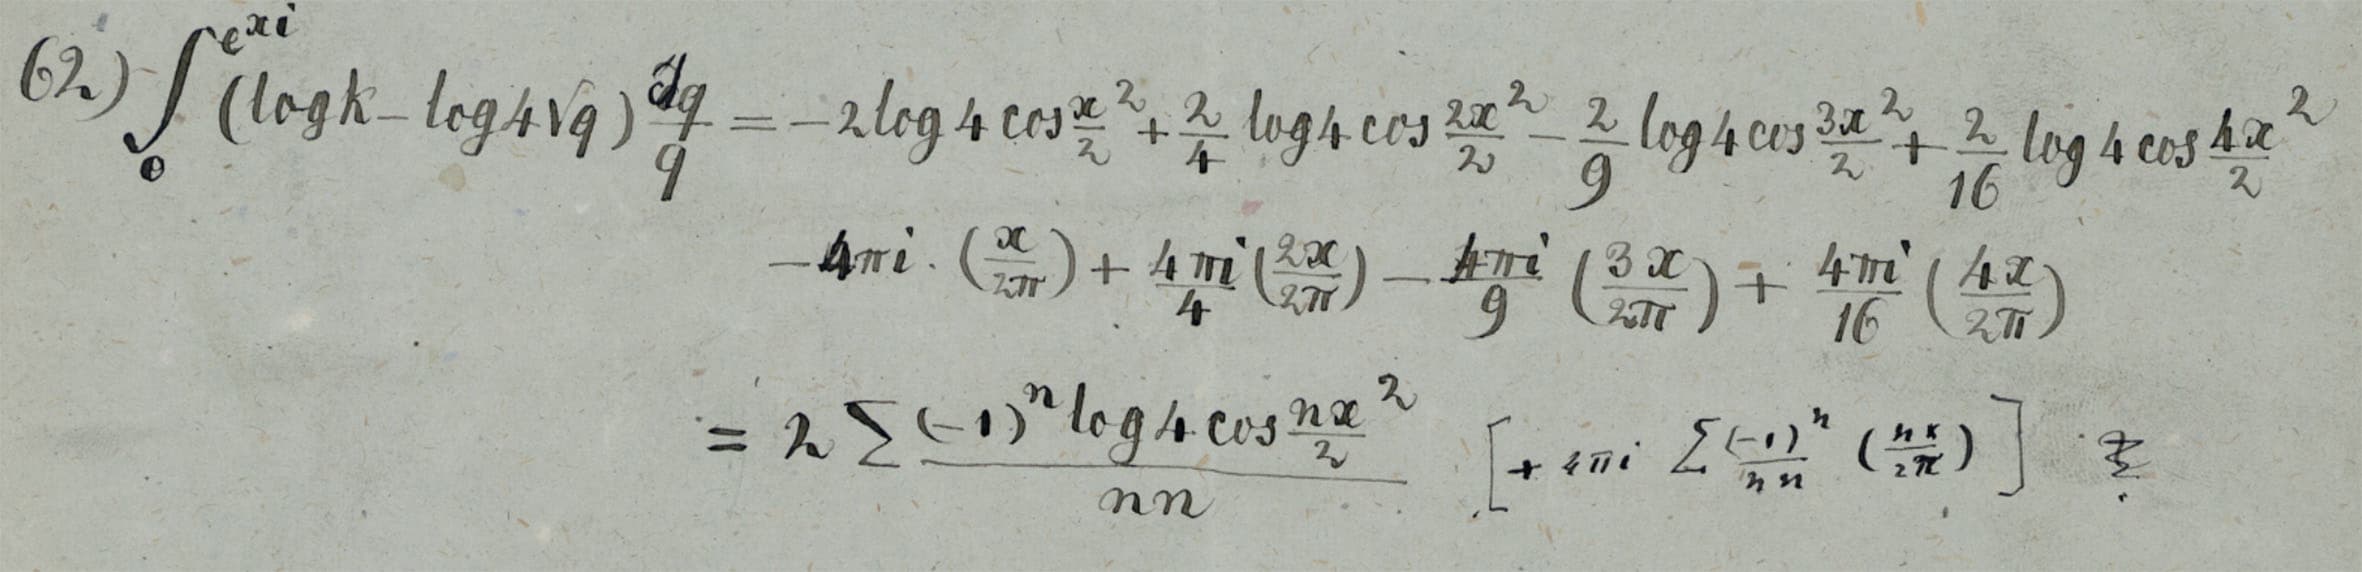 62) ∫₀^{e^{xi}} (log k − log 4√q) dq/q = −2 log 4 cos x/2 ² + 2/4 log 4 cos 2x/2 ² − 2/9 log 4 cos 3x/2 ² + 2/16 log 4 cos 4x/2 ²
− 4πi · (x/2π) + 4πi/4 (2x/2π) − 4πi/9 (3x/2π) + 4πi/16 (4x/2π)
= 2 ∑ (−1)ⁿ log 4 cos nx/2 ² / nn [+ 4πi ∑ (−1)ⁿ/nn (nx/2π)]